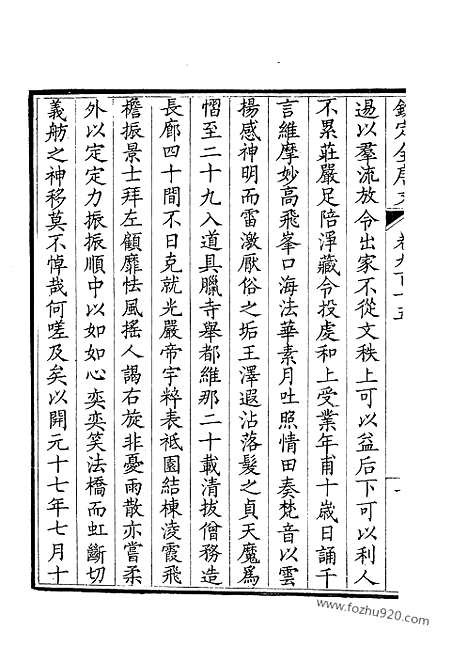 欽定全唐文 卷九百十五
逷以羣流放令出家不從文秩上可以益后下可以利人
不累莊嚴足陪淨藏令投虔和上受業年甫十歲日誦千
言維摩妙高飛峯口海法華素月吐照情田奏梵音以雲
揚感神明而雷激厭俗之垢王澤遐沾落髮之貞天魔爲
慴至二十九入道具臘寺舉都維那二十載清拔僧務造
長廊四十間不日克就光嚴帝宇粹表祗園結棟淩霞飛
檐振景士拜左顧靡怯風搖人謁右旋非憂雨散亦嘗柔
外以定定力振振順中以如如心奕奕笑法橋而虹斷切
義舫之神移莫不悼哉何嗟及矣以開元十七年七月十
www.fozhu920.com